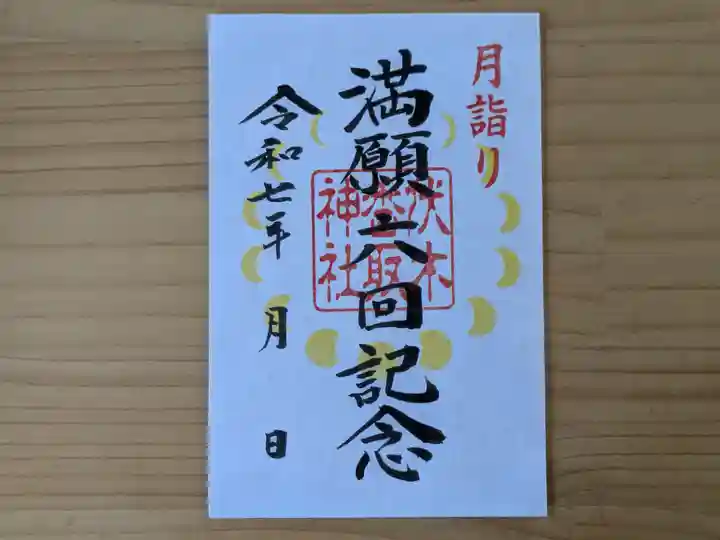 月詣り
満願六回記念
伏木
香取
神社
令和七年 月 日